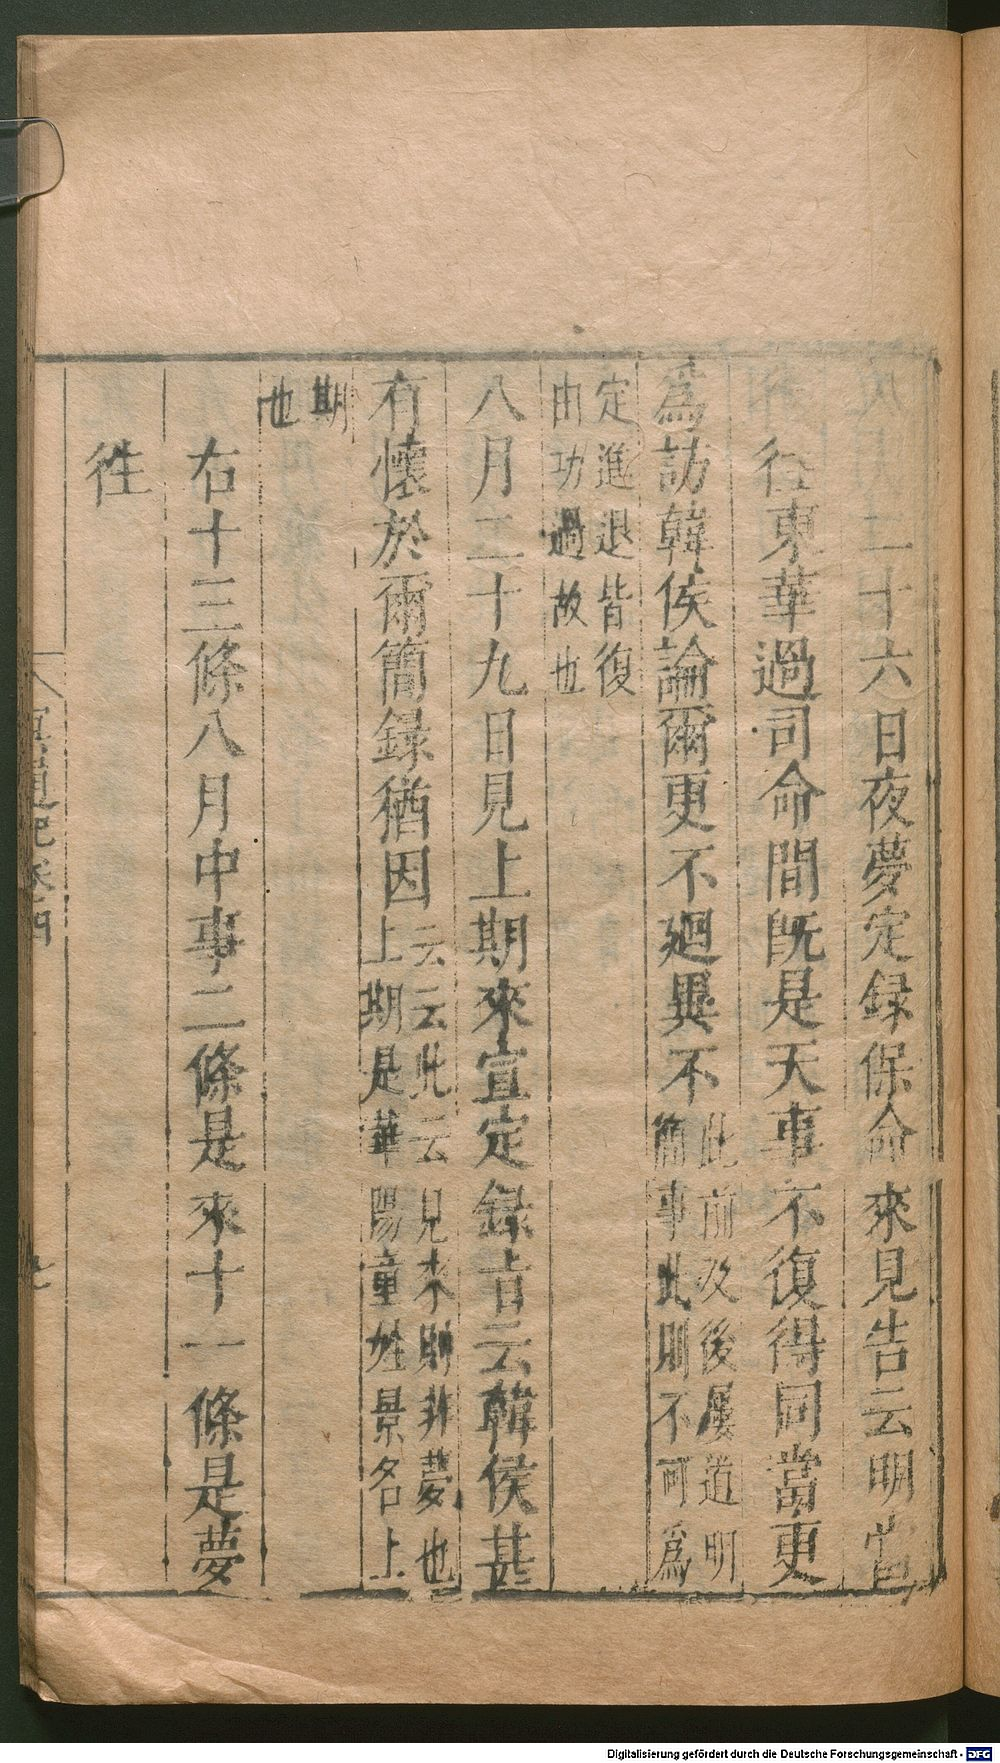 二十六日夜夢定録保命來見告云明當
往東華過司命間既是天事不復得同當更
為訪韓侯論爾更不廻異不
此前及後屢道明
簡事此則不可為
定進退皆復
由功過故也
八月二十九日見上期來宣定録吿云韓侯甚
有懷於爾簡録猶因
云云此云見来則非夢也
上期是華陽童姓景名上
期
也
右十三條八月中事二條是來十一條是夢
徃
真記卷四
Digitalisierung gefördert durch die Deutsche Forschungsgemeinschaft - DFG